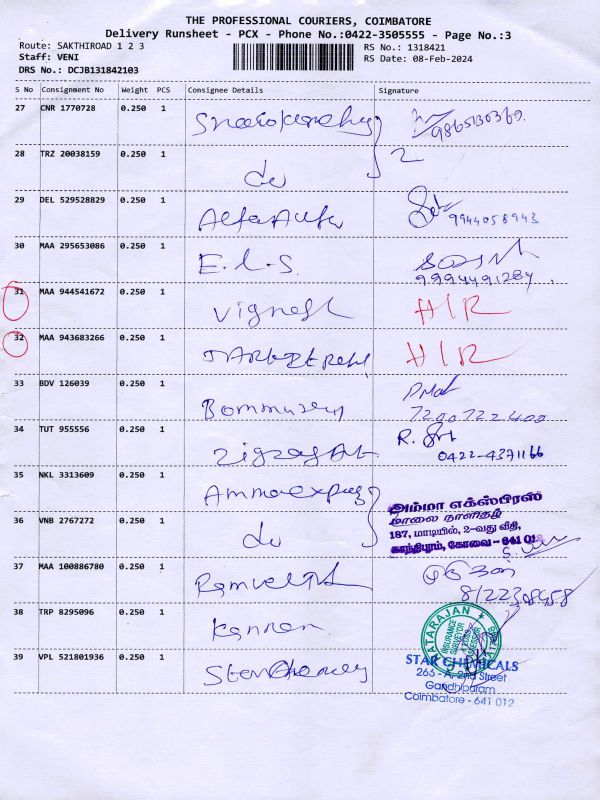 THE PROFESSIONAL COURIERS, COIMBATORE
Delivery Runsheet - PCX - Phone No.:0422-3505555 - Page No.:3
Route: SAKTHIROAD 1 2 3 RS No.: 1318421
Staff: VENI RS Date: 08-Feb-2024
DRS No.: DCJB131842103
S No Consignment No Weight PCS Consignee Details Signature
27 CNR 1770728 0.250 1
28 TRZ 20038159 0.250 1 do 2
29 DEL 529528829 0.250 1 9944058943
30 MAA 295653086 0.250 1 E.L.S. 9994491284
31 MAA 944541672 0.250 1 Vignesh HIR
32 MAA 943683266 0.250 1 HIR
33 BDV 126039 0.250 1 7200722400
34 TUT 955556 0.250 1 R.
0422-4371166
35 NKL 3313609 0.250 1 அம்மா எக்ஸ்பிரஸ்
மாலை நாளிதழ்
36 VNB 2767272 0.250 1 do 187, மாடியில், 2-வது வீதி,
காந்திபுரம், கோவை - 641 012
37 MAA 100886780 0.250 1
38 TRP 8295096 0.250 1 Kannan
NATARAJAN
INSURANCE
SURVEYOR
39 VPL 521801936 0.250 1 STAR CHEMICALS
266 - A, 2nd Street
Gandhipuram
Coimbatore - 641 012